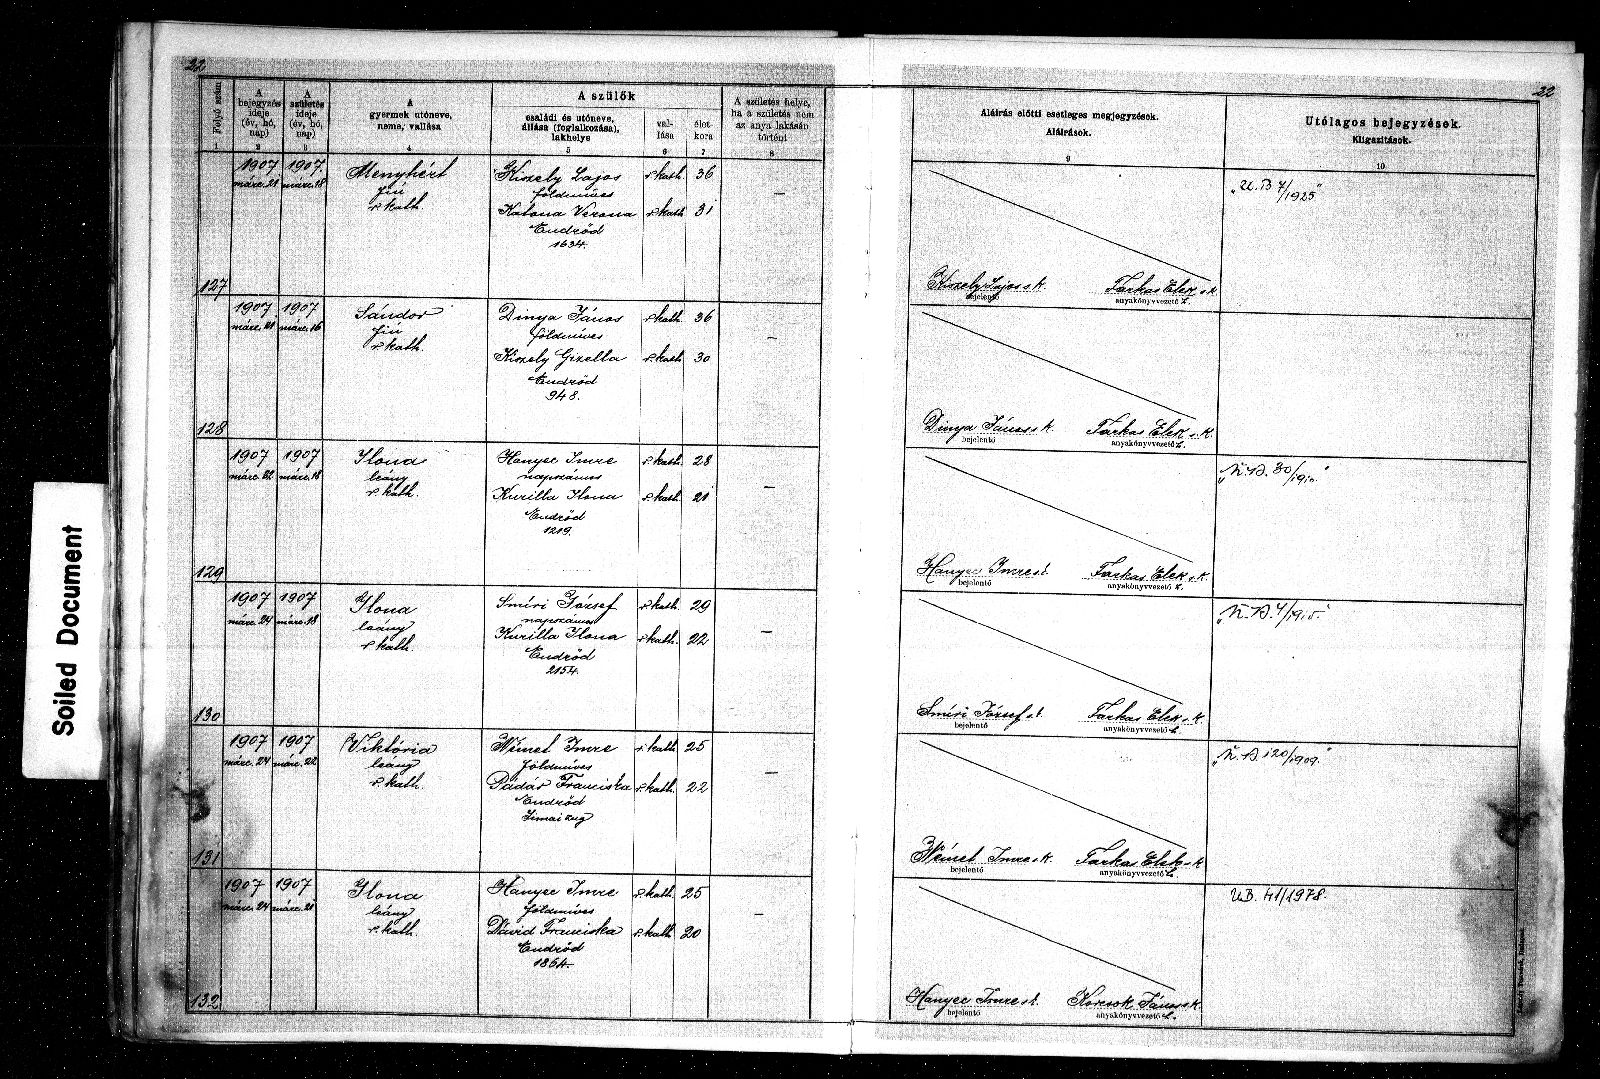 Soiled Document
22
Folyó szám
1
A bejegyzés ideje (év, hó, nap)
2
A születés ideje (év, hó, nap)
3
A gyermek utóneve, neme, vallása
4
A szülők
családi és utóneve, állása (foglalkozása), lakhelye
5
val-lása
6
élet-kora
7
A születés helye, ha a születés nem az anya lakásán történt
8
127
1907 márc. 21
1907. márc. 18
Menyhért
fiú
r. kath.
Kiszely Lajos r. kath. 36
földmíves
Katona Verona r. kath 31
Endrőd
1634.
—
128
1907 márc. 21
1907 márc. 16
Sándor
fiú
r. kath.
Dinya János r. kath. 36
földmíves
Kiszely Gizella r. kath 30
Endrőd
948.
—
129
1907 márc. 22
1907 márc. 18
Ilona
leány
r. kath.
Hanyec Imre r. kath. 28
napszámos
Kurilla Ilona r. kath 21
Endrőd
1219.
—
130
1907 márc. 24
1907 márc. 18
Ilona
leány
r. kath.
Smíri József r. kath 29
napszámos
Kurilla Ilona r. kath. 22
Endrőd
2154.
—
131
1907 márc. 24
1907 márc. 22
Viktória
leány
r. kath.
Német Imre r. kath 25
földmíves
Pádár Franciska r. kath. 22
Endrőd
Simai zug
—
132
1907 márc. 24
1907 márc. 21
Ilona
leány
r. kath.
Hanyec Imre r. kath. 25
földmíves
Dávid Franciska r. kath 20
Endrőd
1864.
—
22
Aláírás előtti esetleges megjegyzések.
Aláírások.
9
Utólagos bejegyzések.
Kiigazítások.
10
„U. B 7/1925"
Kiszely Lajos s.k. Farkas Elek s.k.
bejelentő anyakönyvvezető h.
Dinya János s.k. Farkas Elek s.k.
bejelentő anyakönyvvezető h.
Hanyec Imre s.k. Farkas Elek s.k.
bejelentő anyakönyvvezető h.
Smíri József s.k. Farkas Elek s.k.
bejelentő anyakönyvvezető h.
„U. B. 120/1909."
Német Imre s.k. Farkas Elek s.k.
bejelentő anyakönyvvezető h.
UB. 41/1978.
Hanyec Imre s.k. Korcsok János s.k.
bejelentő anyakönyvvezető h.